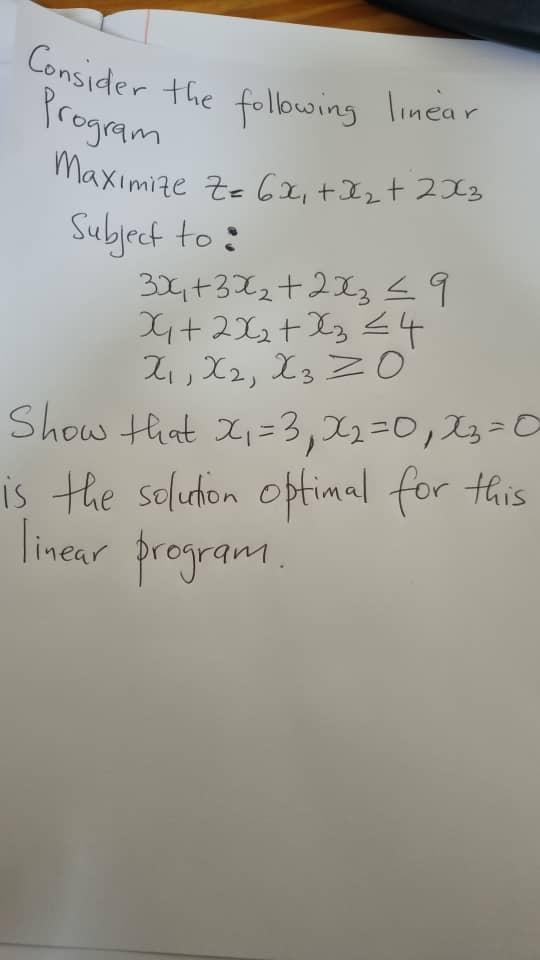 Consider the following linear
Program
Maximize Z = 6x₁ + x₂ + 2x₃
Subject to :
3x₁ + 3x₂ + 2x₃ ≤ 9
x₁ + 2x₂ + x₃ ≤ 4
x₁, x₂, x₃ ≥ 0
Show that x₁ = 3, x₂ = 0, x₃ = 0
is the solution optimal for this
linear program.